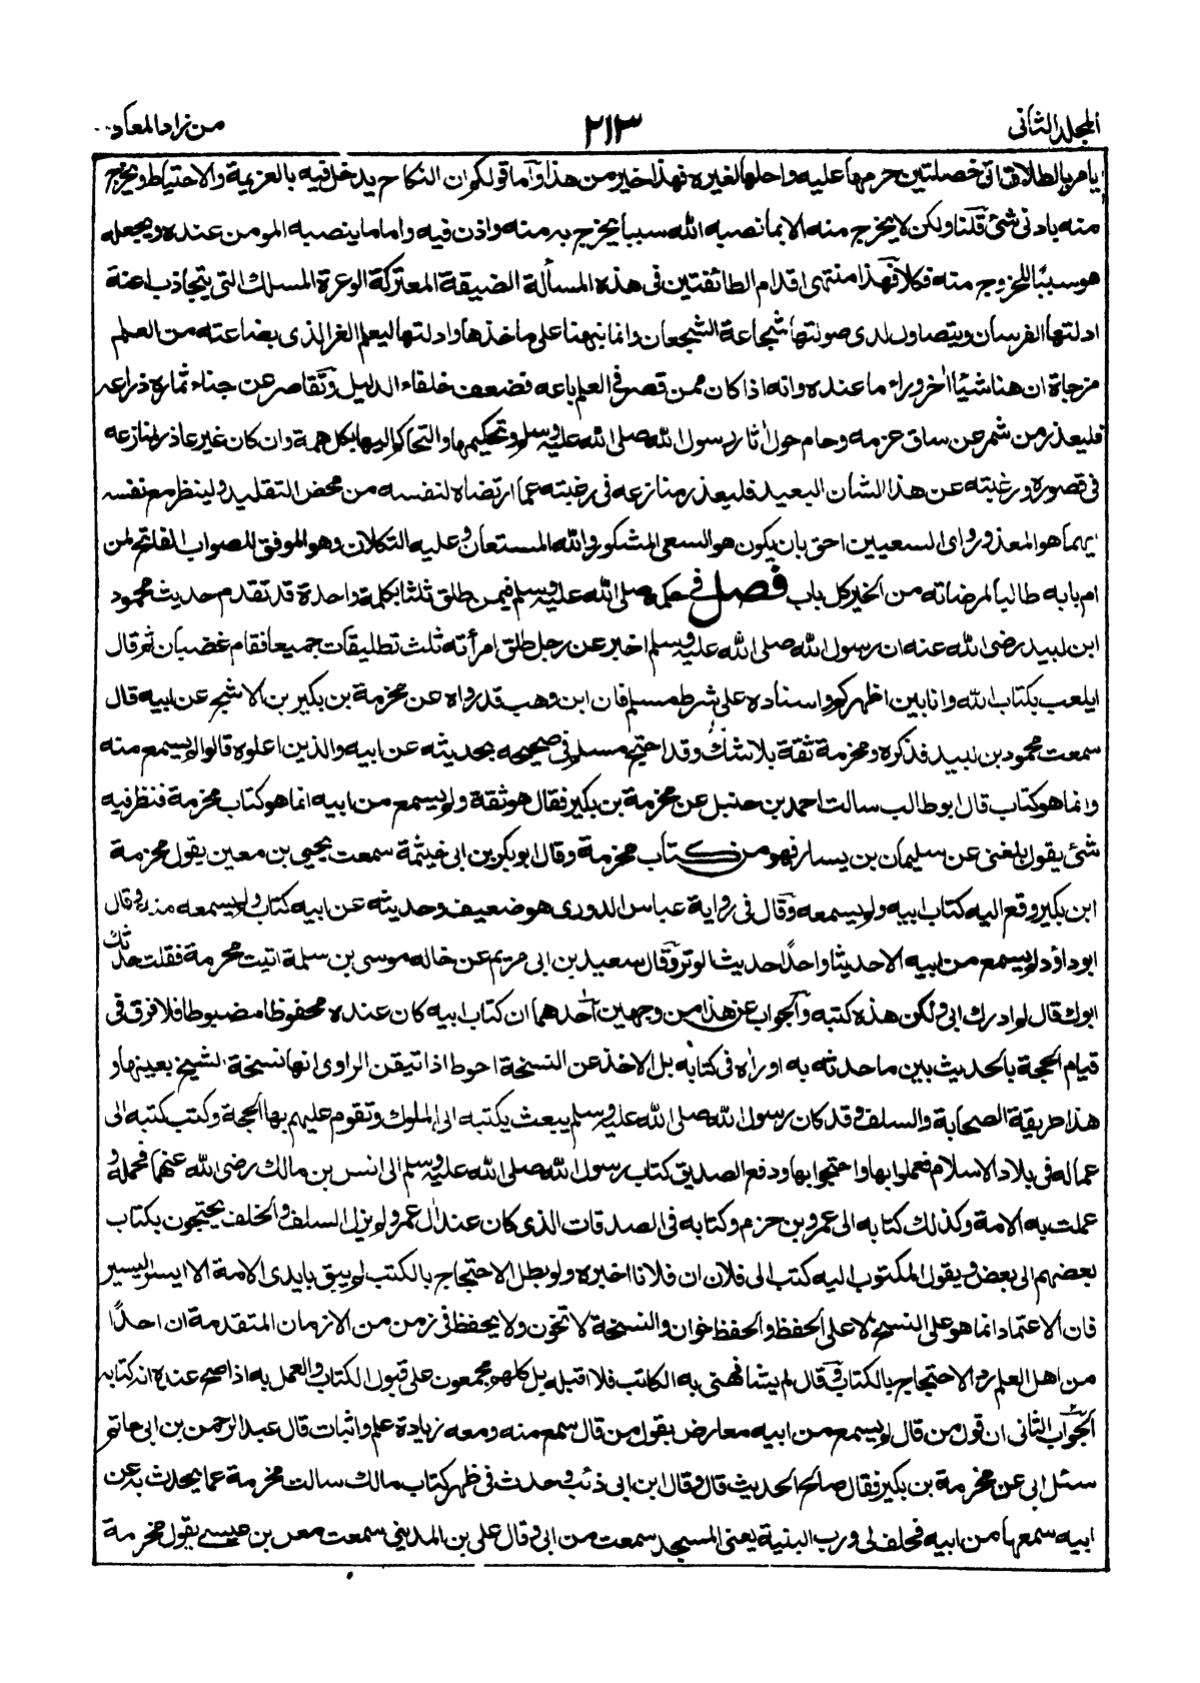 المجلد الثانى
٢١٣
من زاد المعاد
يامر بالطلاق اتى خصلتين حرمها عليه واحلها لغيره فهذا خير من هذا واما قولكم ان النكاح يدخل فيه بالعزيمة والاحتياط ويخرج
منه بادنى شئ قلنا ولكن لا يخرج منه الا بما نصبه الله سببا يخرج به منه واذن فيه واما ما ينصبه المومن عنده ويجعله
هو سببًا للخروج منه فكلا فهذا منتهى اقدام الطائفتين فى هذه المسألة الضيقة المعتركة الوعرة المسلك التى يتجاذب اعنة
ادلتها الفرسان ويتصاول لدى صولتها شجاعة الشجعان وانما نبهنا على ماخذها وادلتها ليعلم الغر الذى بضاعته من العلم
مزجاة ان هنا شيًا اخر وراء ما عنده وانه اذا كان ممن قصر فى العلم باعه فضعف خلفاء الدليل وتقاصر عن جناء ثماره ذراعه
فليعذر من شمر عن ساق عزمه وحام حول اثار رسول الله صلى الله عليه وسلم وتحكيمها والتحاكم اليها بكل همة وان كان غير عاذر لمنازعه
فى قصوره ورغبته عن هذا الشان البعيد فليعذر منازعه فى رغبته عما ارتضاه لنفسه من محض التقليد ولينظر مع نفسه
ايهما هو المعذور واى السعيين احق بان يكون هو السعى المشكور والله المستعان وعليه التكلان وهو الموفق للصواب الفاتح لمن
ام بابه طالبا لمرضاته من الخير كل باب فصل فى حكمه صلى الله عليه وسلم فيمن طلق ثلثا بكلمة واحدة قد تقدم حديث محمود
ابن لبيد رضى الله عنه ان رسول الله صلى الله عليه وسلم اخبر عن رجل طلق امرأته ثلث تطليقات جميعا فقام غضبان ثم قال
ايلعب بكتاب الله وانا بين اظهركم واسناده على شرط مسلم فان ابن وهب قد رواه عن مخرمة بن بكير بن الاشج عن ابيه قال
سمعت محمود بن لبيد فذكره ومخرمة ثقة بلا شك وقد احتج مسلم فى صحيحه بحديثه عن ابيه والذين اعلوه قالوا لم يسمع منه
وانما هو كتاب قال ابو طالب سالت احمد بن حنبل عن مخرمة بن بكير فقال هو ثقة ولم يسمع من ابيه انما هو كتاب مخرمة فنظر فيه
شئ يقول بلغنى عن سليمان بن يسار فهو من كتاب مخرمة وقال ابو بكر بن ابى خيثمة سمعت يحيى بن معين يقول مخرمة
ابن بكير وقع اليه كتاب ابيه ولم يسمعه وقال فى رواية عباس الدورى هو ضعيف وحديثه عن ابيه كتاب ولم يسمعه منه وقال
ابو داؤد لم يسمع من ابيه الا حديثا واحدًا حديث الوتر وقال سعيد بن ابى مريم عن خاله موسى بن سلمة اتيت مخرمة فقلت حدثك
ابوك قال لم ادرك ابى ولكن هذه كتبه والجواب عن هذا من وجهين احدهما ان كتاب ابيه كان عنده محفوظا مضبوطا فلا فرق فى
قيام الحجة بالحديث بين ما حدثه به او راه فى كتابه بل الاخذ عن النسخة احوط اذا تيقن الراوى انها نسخة الشيخ بعينها و
هذا طريقة الصحابة والسلف وقد كان رسول الله صلى الله عليه وسلم يبعث بكتبه الى الملوك وتقوم عليهم بها الحجة وكتب كتبه الى
عماله فى بلاد الاسلام فعملوا بها واحتجوا بها ودفع الصديق كتاب رسول الله صلى الله عليه وسلم الى انس بن مالك رضى الله عنهما فحمله و
عملت به الامة وكذلك كتابه الى عمرو بن حزم وكتابه فى الصدقات الذى كان عند ال عمر ولم يزل السلف والخلف يحتجون بكتاب
بعضهم الى بعض ويقول المكتوب اليه كتب الى فلان ان فلانا اخبره ولو بطل الاحتجاج بالكتب لم يبق بايدى الامة الا ايسر اليسير
فان الاعتماد انما هو على النسخ لا على الحفظ والحفظ خوان والنسخة لا تخون ولا يحفظ فى زمن من الازمان المتقدمة ان احدًا
من اهل العلم رد الاحتجاج بالكتاب وقال لم يشافهنى به الكاتب فلا اقبله بل كلهم مجمعون على قبول الكتاب والعمل به اذا صح عنده انه كتابه
الجواب الثانى ان قول من قال لم يسمع من ابيه معارض بقول من قال سمع منه ومعه زيادة علم واثبات قال عبد الرحمن بن ابى حاتم
سئل ابى عن مخرمة بن بكير فقال صالح الحديث قال وقال ابن ابى ذئب وحدث فى ظهر كتاب مالك سالت مخرمة عما يحدث به عن
ابيه سمعها من ابيه فحلف لى ورب البنية يعنى المسجد سمعت من ابى وقال على بن المدينى سمعت معن بن عيسى يقول مخرمة